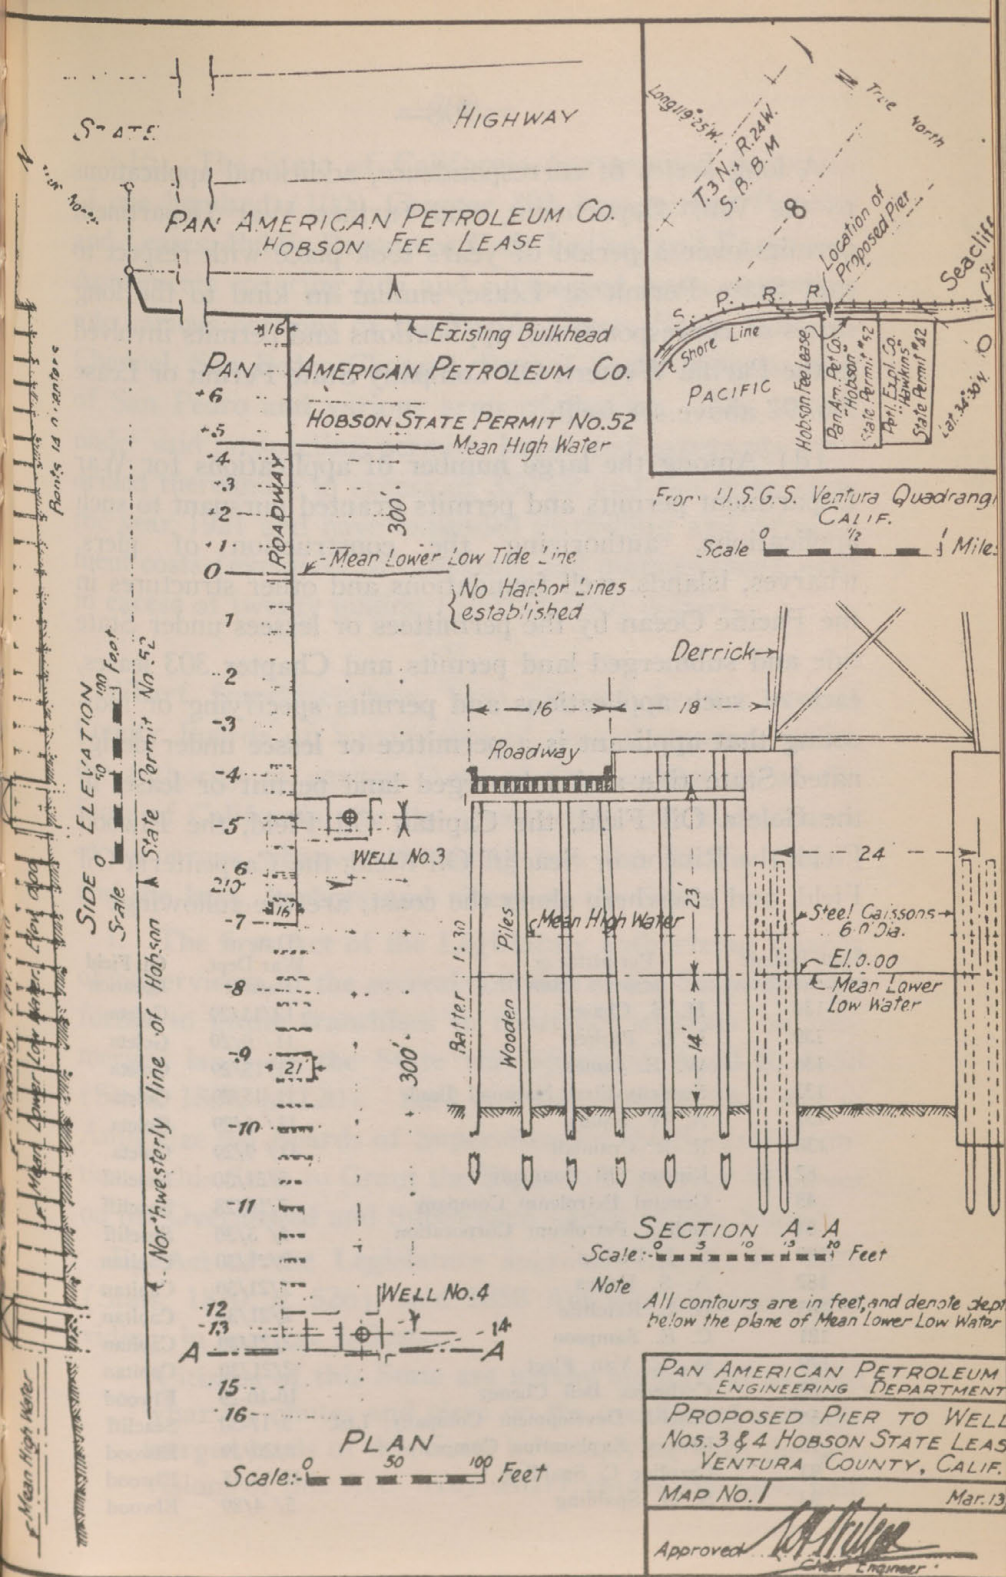 STATE
HIGHWAY
N
True North
PAN AMERICAN PETROLEUM CO.
HOBSON FEE LEASE
16
Existing Bulkhead
PAN AMERICAN PETROLEUM CO.
+6
HOBSON STATE PERMIT No.52
+5
Mean High Water
+4
+3
+2
+1
0
ROADWAY
300'
Mean Lower Low Tide Line
No Harbor Lines
established
1
-2
-3
-4
-5
WELL No.3
6
210
16
-7
-8
-9
21'
300'
-10
-11
WELL No.4
12
-13
14
A A
15
16
PLAN
Scale:- 0 50 100 Feet
Northwesterly line of Hobson State Permit No.52
SIDE ELEVATION
Scale 0 50 100 Feet
Bents 14' 0" centers
Mean Lower Low Water, Elev. 0.00
Mean High Water
Long 119°25'W.
T.3 N., R.24W.
S. B. B. M
8
N
True North
Location of
Proposed Pier
Seacliff
S. P. R. R.
Shore Line
PACIFIC
O
Hobson Fee Lease
Pan Am. Pet Co.
"Hobson"
State Permit #52
Petl. Expl. Co.
"Hawkins"
State Permit #82
From U.S.G.S. Ventura Quadrangl
CALIF.
Scale 0 1/2 1 Mile
Derrick
16 18
Roadway
24
23'
Mean High Water
Steel Caissons
6'0" Dia.
El. 0.00
Mean Lower
Low Water
Batter 1:30
Wooden Piles
14'
SECTION A-A
Scale:- 0 5 10 15 20 Feet
Note
All contours are in feet, and denote dept
below the plane of Mean Lower Low Water
PAN AMERICAN PETROLEUM
ENGINEERING DEPARTMENT
PROPOSED PIER TO WELL
Nos. 3 & 4 HOBSON STATE LEAS
VENTURA COUNTY, CALIF.
MAP No. 1 Mar. 13
Approved
Chief Engineer